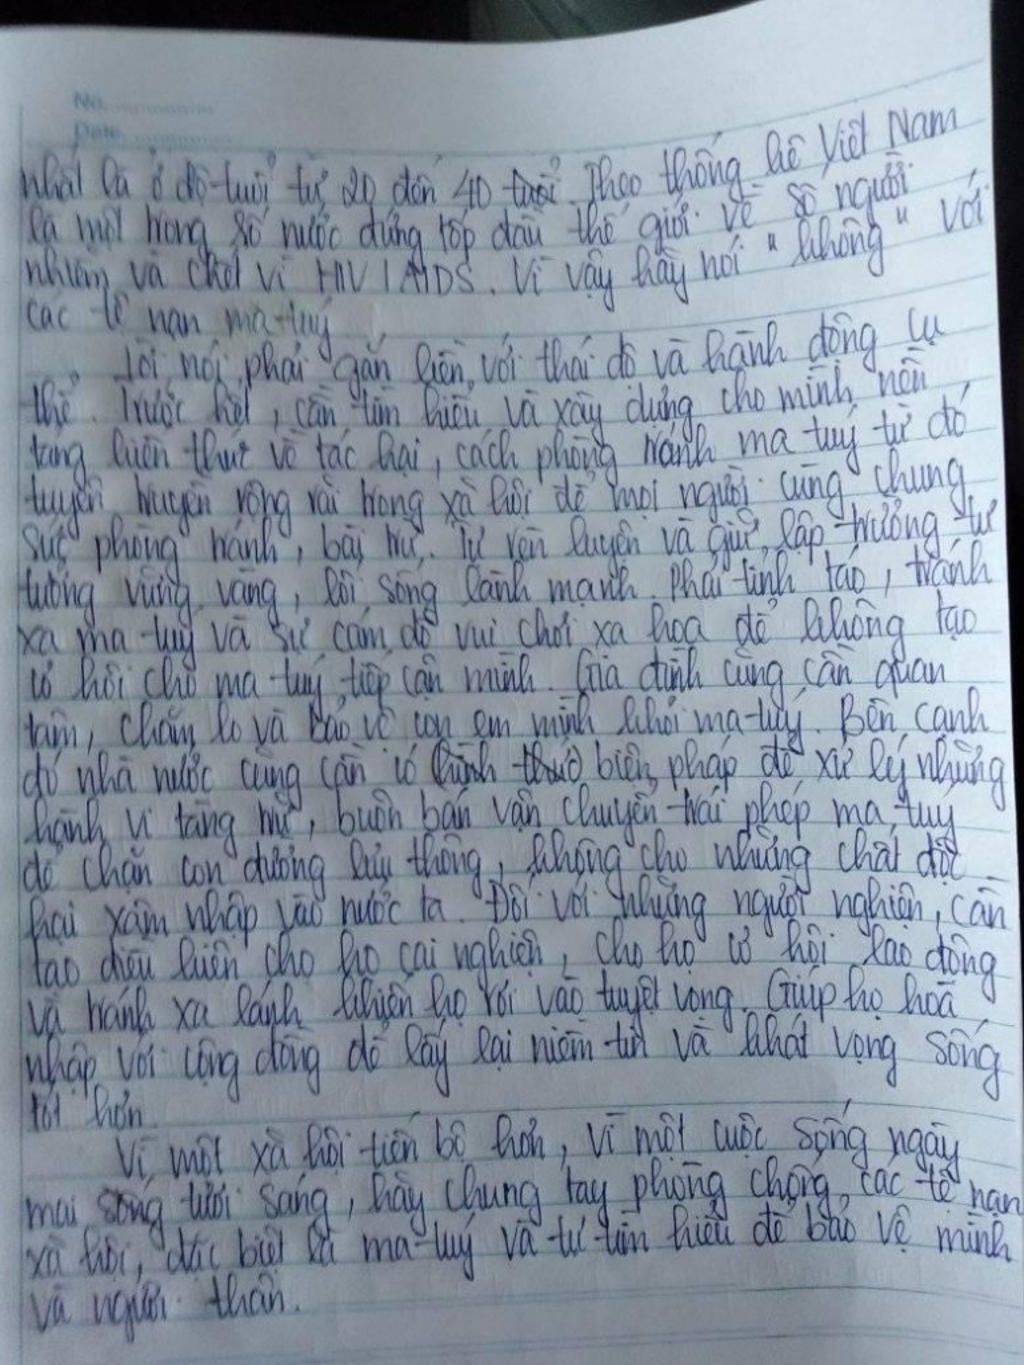 No.
Date.
nhất là ở độ tuổi từ 20 đến 40 tuổi. Theo thống kê Việt Nam
là một trong số nước đứng tốp đầu thế giới về số người
nhiễm và chết vì HIV/AIDS. Vì vậy hãy nói "không" với
các tệ nạn ma túy
Lời nói phải gắn liền với thái độ và hành động cụ
thể. Trước hết, cần tìm hiểu và xây dựng cho mình nền
tảng kiến thức về tác hại, cách phòng tránh ma tuý từ đó
tuyên truyền rộng rãi trong xã hội để mọi người cùng chung
sức phòng tránh, bài trừ. Tự rèn luyện và giữ lập trường tư
tưởng vững vàng, lối sống lành mạnh. Phải tỉnh táo, tránh
xa ma tuý và sự cám dỗ vui chơi xa hoa để không tạo
cơ hội cho ma tuý tiếp cận mình. Gia đình cũng cần quan
tâm, chăm lo và bảo vệ con em mình khỏi ma tuý. Bên cạnh
đó nhà nước cũng cần có (hình thức) biện pháp để xử lý những
hành vi tàng trữ, buôn bán vận chuyển trái phép ma tuý
để chặn con đường lưu thông, không cho những chất độc
hại xâm nhập vào nước ta. Đối với những người nghiện, cần
tạo điều kiện cho họ cai nghiện, cho họ cơ hội lao động
và tránh xa lánh khiến họ rơi vào tuyệt vọng. Giúp họ hoà
nhập với cộng đồng để lấy lại niềm tin và khát vọng sống
tốt hơn.
Vì một xã hội tiến bộ hơn, vì một cuộc sống ngày
mai sống tươi sáng, hãy chung tay phòng chống các tệ nạn
xã hội, đặc biệt là ma tuý và tự tìm hiểu để bảo vệ mình
và người thân.